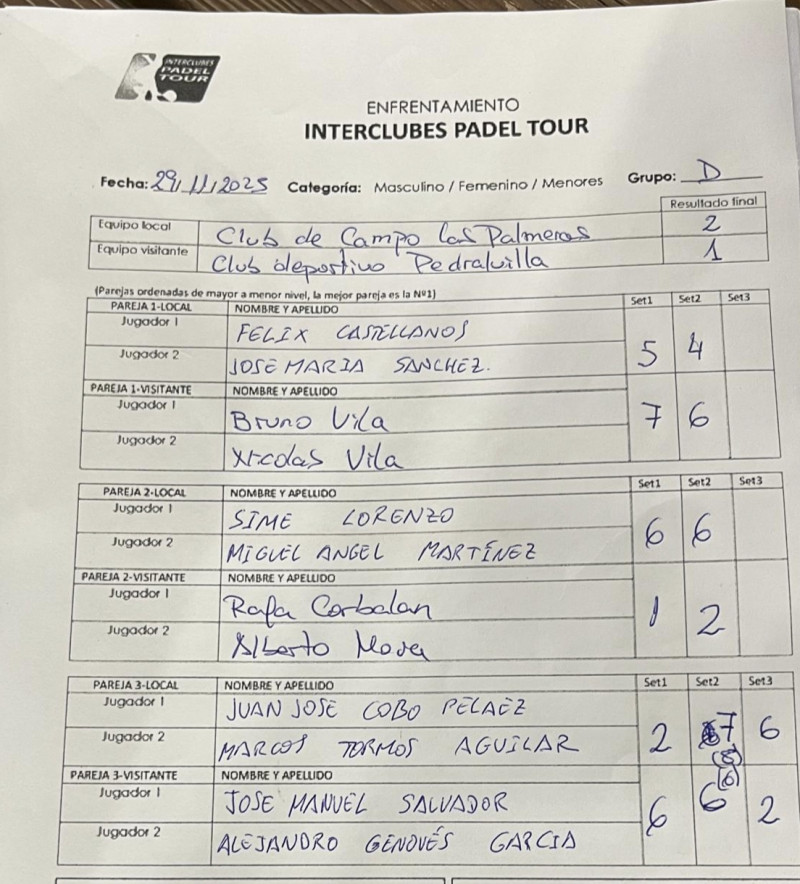 INTERCLUBES
PADEL
TOUR
ENFRENTAMIENTO
INTERCLUBES PADEL TOUR
Fecha: 29/11/2025 Categoría: Masculino / Femenino / Menores Grupo: D
Resultado final
Equipo local Club de Campo Las Palmeras 2
Equipo visitante Club deportivo Pedralvilla 1
(Parejas ordenadas de mayor a menor nivel, la mejor pareja es la Nº1)
PAREJA 1-LOCAL NOMBRE Y APELLIDO Set1 Set2 Set3
Jugador 1 FELIX CASTELLANOS
Jugador 2 JOSE MARIA SANCHEZ. 5 4
PAREJA 1-VISITANTE NOMBRE Y APELLIDO
Jugador 1 Bruno Vila 7 6
Jugador 2 Nicolas Vila
PAREJA 2-LOCAL NOMBRE Y APELLIDO Set1 Set2 Set3
Jugador 1 SIME LORENZO
Jugador 2 MIGUEL ANGEL MARTÍNEZ 6 6
PAREJA 2-VISITANTE NOMBRE Y APELLIDO
Jugador 1 Rafa Corbalan 1 2
Jugador 2 Alberto Mora
PAREJA 3-LOCAL NOMBRE Y APELLIDO Set1 Set2 Set3
Jugador 1 JUAN JOSE COBO PELAEZ
Jugador 2 MARCOS TORMOS AGUILAR 2 7 6
(8)
PAREJA 3-VISITANTE NOMBRE Y APELLIDO (6)
Jugador 1 JOSE MANUEL SALVADOR 6 6 2
Jugador 2 ALEJANDRO GENOVÉS GARCIA